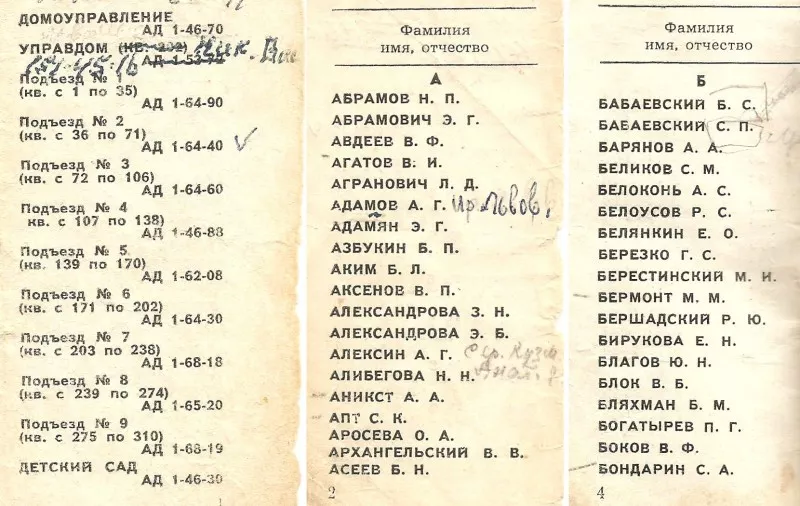 ДОМОУПРАВЛЕНИЕ
АД 1-46-70
УПРАВДОМ (КВ. 202) Ник.
АД 1-53-72
151-45-16
Подъезд № 1
(кв. с 1 по 35)
АД 1-64-90
Подъезд № 2
(кв. с 36 по 71)
АД 1-64-40
Подъезд № 3
(кв. с 72 по 106)
АД 1-64-60
Подъезд № 4
кв. с 107 по 138)
АД 1-46-88
Подъезд № 5
(кв. 139 по 170)
АД 1-62-08
Подъезд № 6
(кв. с 171 по 202)
АД 1-64-30
Подъезд № 7
(кв. с 203 по 238)
АД 1-68-18
Подъезд № 8
(кв. с 239 по 274)
АД 1-65-20
Подъезд № 9
(кв. с 275 по 310)
АД 1-68-19
ДЕТСКИЙ САД
АД 1-46-30
Фамилия
имя, отчество
А
АБРАМОВ Н. П.
АБРАМОВИЧ Э. Г.
АВДЕЕВ В. Ф.
АГАТОВ В. И.
АГРАНОВИЧ Л. Д.
АДАМОВ А. Г. Ир. Львов.
АДАМЯН Э. Г.
АЗБУКИН Б. П.
АКИМ Б. Л.
АКСЕНОВ В. П.
АЛЕКСАНДРОВА З. Н.
АЛЕКСАНДРОВА Э. Б.
АЛЕКСИН А. Г.
АЛИБЕГОВА Н. Н. Анат.
АНИКСТ А. А.
АПТ С. К.
АРОСЕВА О. А.
АРХАНГЕЛЬСКИЙ В. В.
АСЕЕВ Б. Н.
2
Фамилия
имя, отчество
Б
БАБАЕВСКИЙ Б. С.
БАБАЕВСКИЙ С. П.
БАРЯНОВ А. А.
БЕЛИКОВ С. М.
БЕЛОКОНЬ А. С.
БЕЛОУСОВ Р. С.
БЕЛЯНКИН Е. О.
БЕРЕЗКО Г. С.
БЕРЕСТИНСКИЙ М. И.
БЕРМОНТ М. М.
БЕРШАДСКИЙ Р. Ю.
БИРУКОВА Е. Н.
БЛАГОВ Ю. Н.
БЛОК В. Б.
БЛЯХМАН Б. М.
БОГАТЫРЕВ П. Г.
БОКОВ В. Ф.
БОНДАРИН С. А.
4